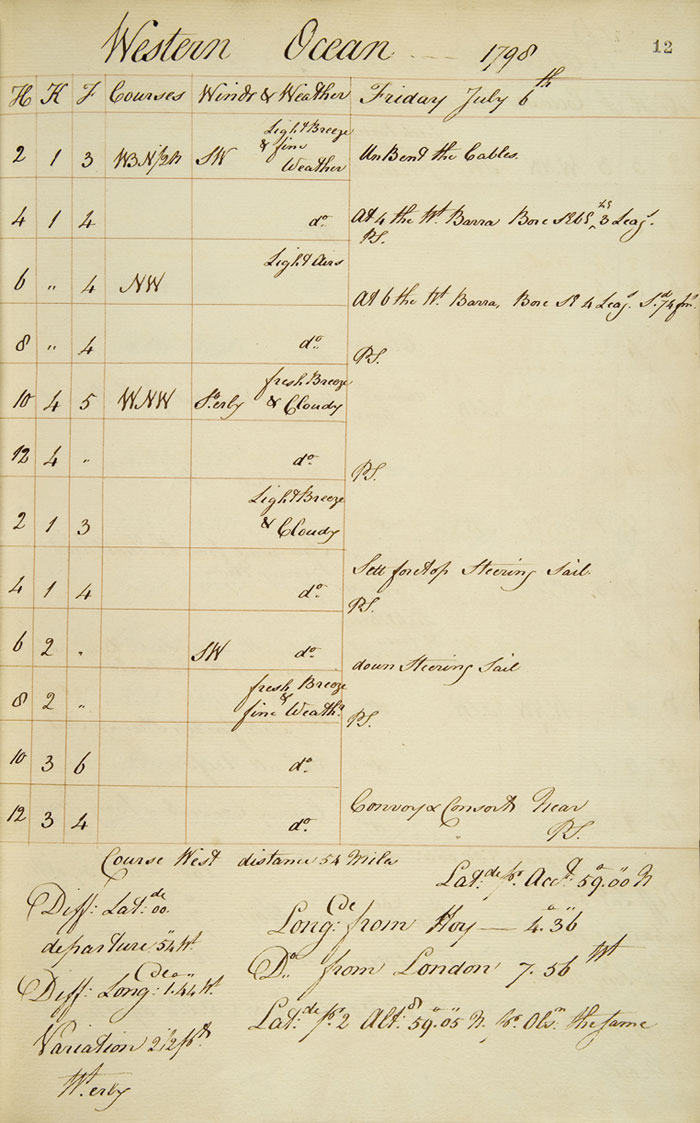 Western Ocean 1798
12
H K F Courses Winds & Weather Friday July 6th
Light Breeze
2 1 3 WBN½N SW & fine Weather UnBend the Cables.
4 1 4 do At 4 the Wt. Barra Bore SEbS 3 Leags.
P.S.
Light Airs
6 " 4 NW
At 6 the Wt. Barra, Bore SE 4 Leags. Sd. 74 fms.
8 " 4 do
P.S.
fresh Breeze
10 4 5 WNW So.erly & Cloudy
12 4 " do
P.S.
Light Breeze
2 1 3 & Cloudy
Sett foretop Steering Sail
4 1 4 do
P.S.
6 2 " SW do
down Steering Sail
fresh Breeze &
8 2 " fine Weathr.
P.S.
10 3 6 do
Convoy & Consorts Near
12 3 4 do
P.S.
Course West distance 54 Miles
Lat:de pr. Acct. 59.00 N
Diff: Lat:de 00.
Long:de from Hoy — 4.36
departure 54 Wt.
Do. from London 7.56 Wt
Diff: Long:de 1.44 Wt.
Lat:de pr. 2 Alts. 59.05 N. pr. Obsn. the same
Variation 2½ pts.
Wt.erly